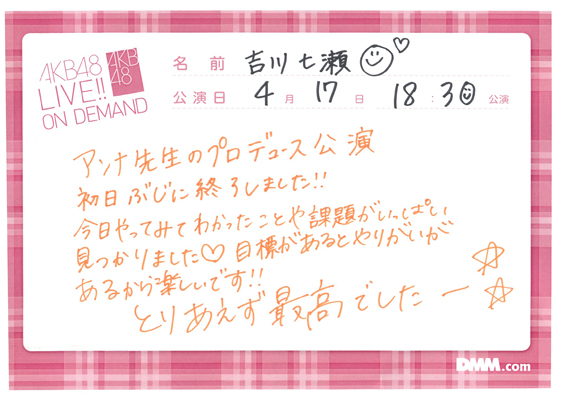 AKB48
LIVE!!
ON DEMAND
AKB
48
名前 吉川七瀬
公演日 4月17日 18:30公演
アンナ先生のプロデュース公演
初日ぶじに終了しました!!
今日やってみてわかったことや課題がいっぱい
見つかりました♡目標があるとやりがいが
あるから楽しいです!!
とりあえず最高でしたー☆☆
DMM.com